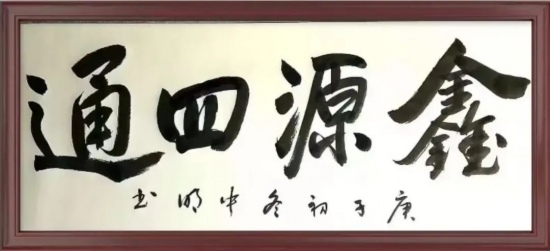 鑫源四通
庚子初冬中明书